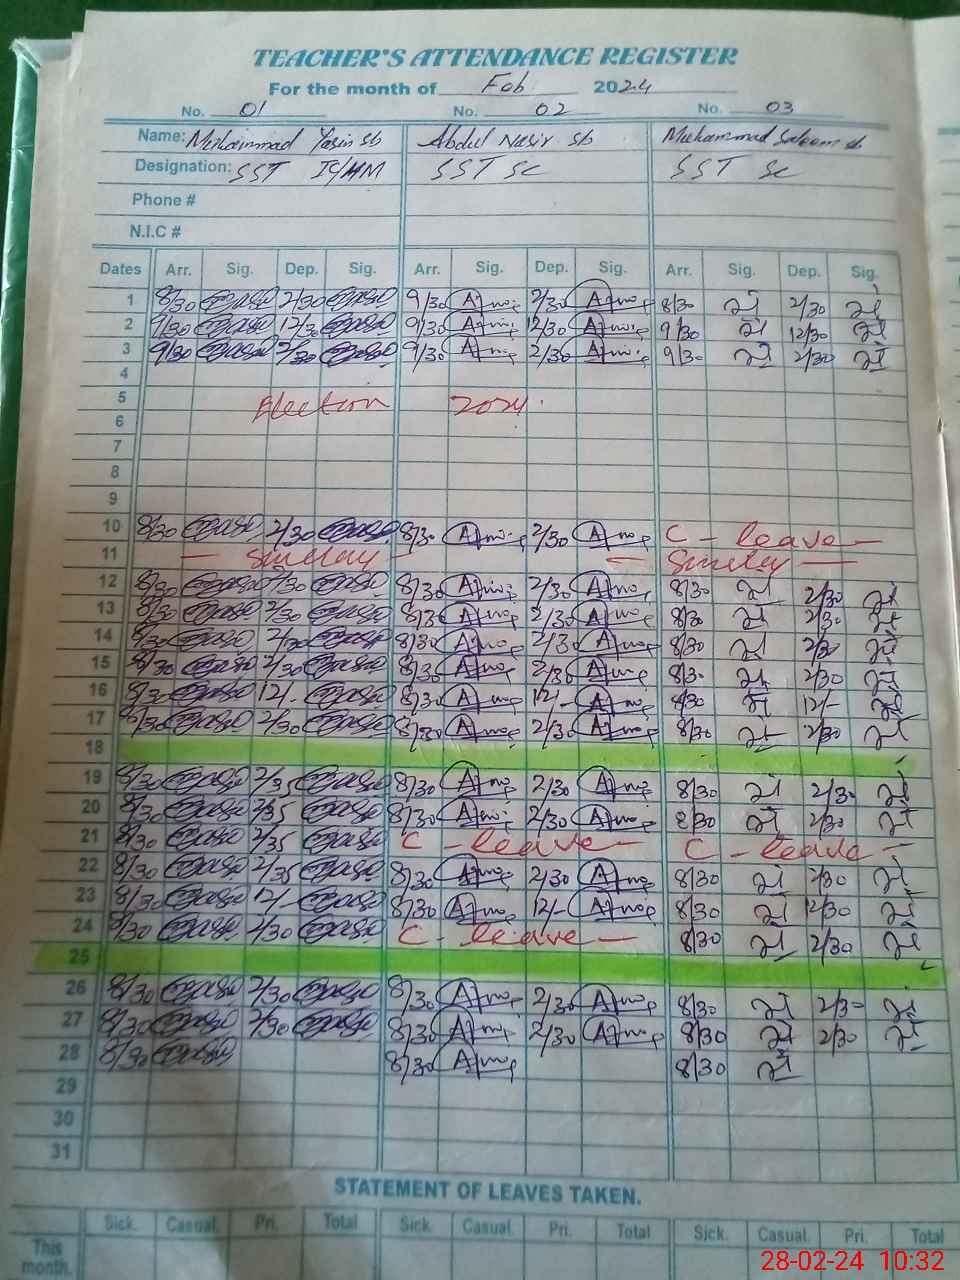 TEACHER'S ATTENDANCE REGISTER
For the month of Feb 2024
No. 01 No. 02 No. 03
Name: Muhammad Yasin sb Abdul Nasir sb Muhammad Saleem sb
Designation: SST SST Sc SST Sc
Phone #
N.I.C #
Dates Arr. Sig. Dep. Sig. Arr. Sig. Dep. Sig. Arr. Sig. Dep. Sig.
1 8/30 2/30 9/30 2/30 8/30 2/30
2 9/30 12/30 9/30 12/30 9/30 12/30
3 9/30 2/30 9/30 2/30 9/30 2/30
4
5 Election 2024
6
7
8
9
10 8/30 2/30 8/30 2/30 C - leave -
11 - Sunday - - Sunday -
12 8/30 2/30 8/30 2/30 8/30 2/30
13 8/30 2/30 8/30 2/30 8/30 2/30
14 8/30 2/30 8/30 2/30 8/30 2/30
15 8/30 2/30 8/30 2/30 8/30 2/30
16 8/30 12/- 8/30 12/- 8/30 12/-
17 8/30 2/30 8/30 2/30 8/30 2/30
18
19 8/30 2/35 8/30 2/30 8/30 2/30
20 8/30 2/35 8/30 2/30 8/30 2/30
21 8/30 2/35 C - leave - C - leave -
22 8/30 2/35 8/30 2/30 8/30 2/30
23 8/30 12/- 8/30 12/- 8/30 12/30
24 8/30 2/30 C - leave - 8/30 2/30
25
26 8/30 2/30 8/30 2/30 8/30 2/30
27 8/30 2/30 8/30 2/30 8/30 2/30
28 8/30 8/30 8/30
29
30
31
STATEMENT OF LEAVES TAKEN.
Sick. Casual. Pri. Total Sick. Casual. Pri. Total Sick. Casual. Pri. Total
This month.
28-02-24 10:32